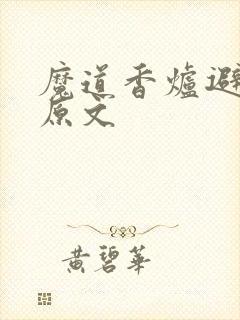 魔道香爐避
原文
黃碧華